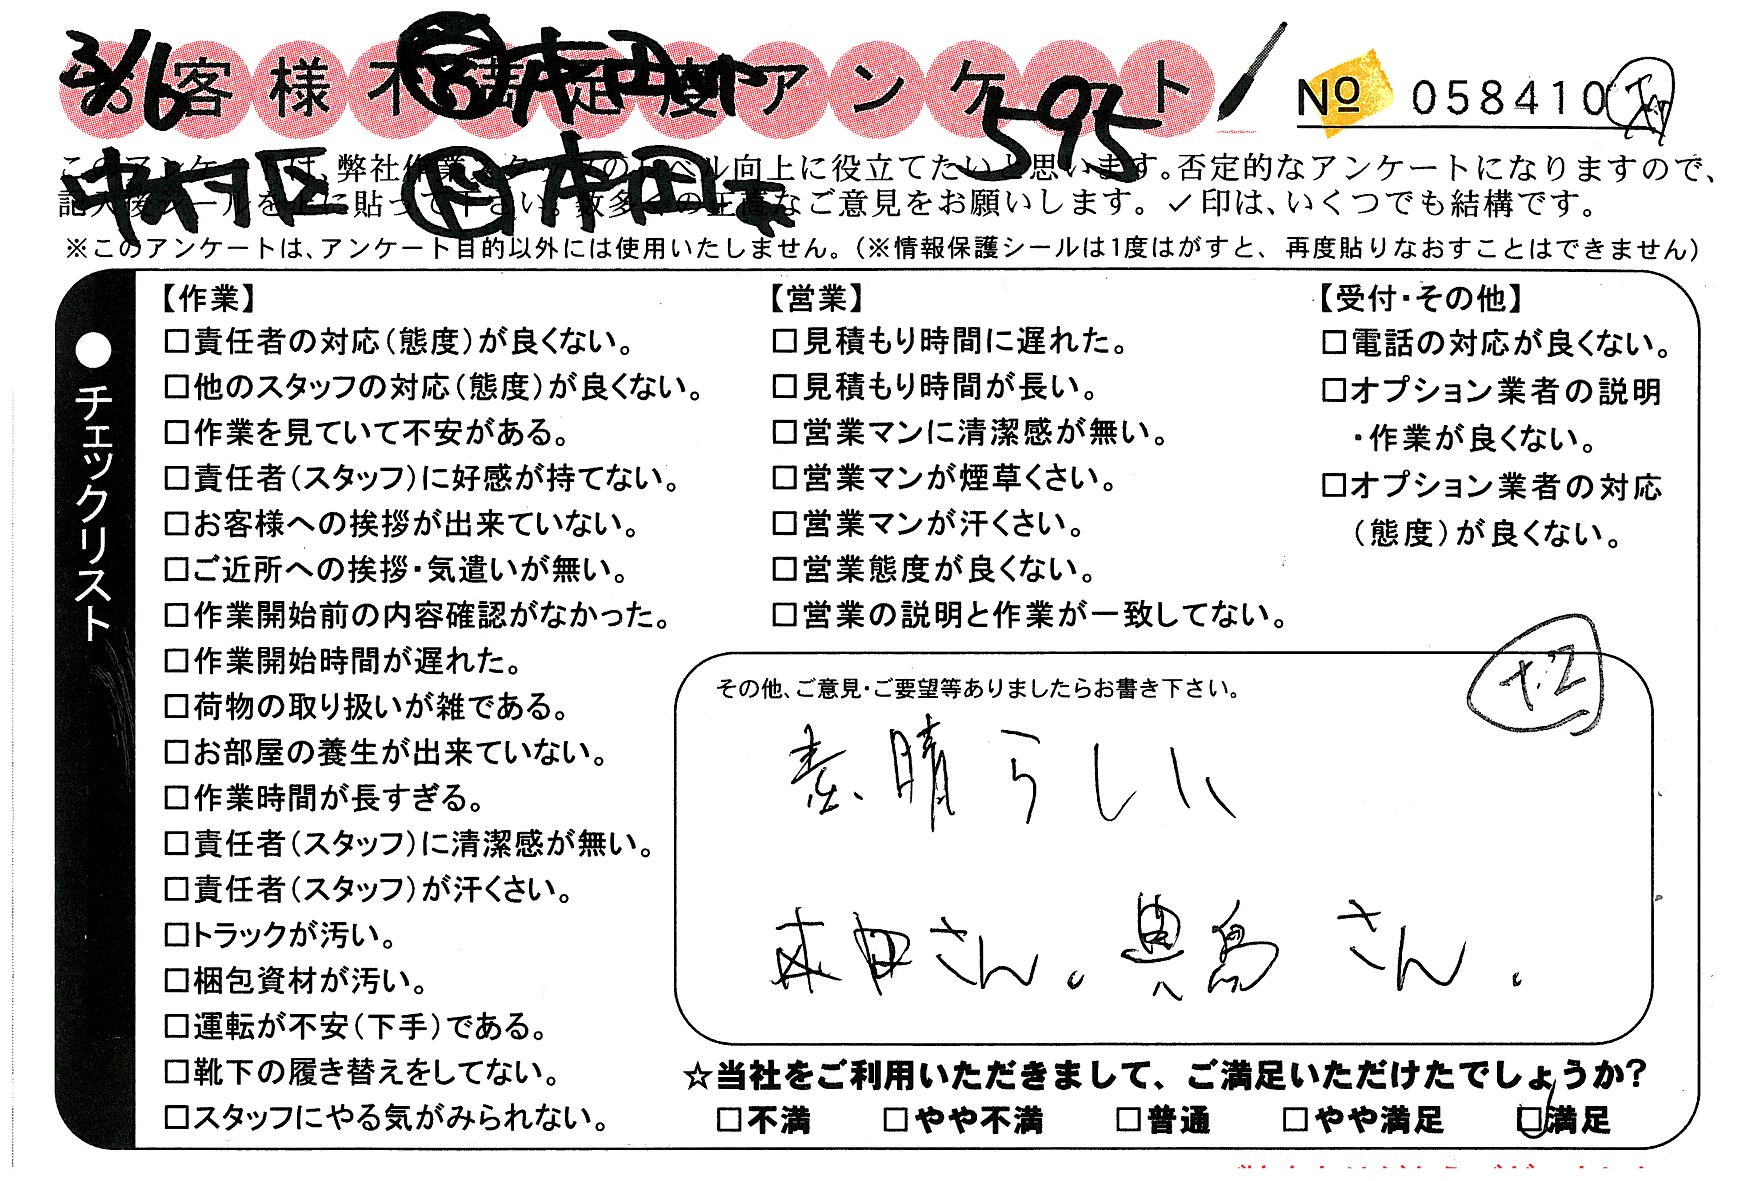 3/6
お客様不満足度アンケート
595
No 058410
このアンケートは、弊社作業スタッフのレベル向上に役立てたいと思います。否定的なアンケートになりますので、
中村区 本田
記入後シールを上に貼って下さい。数多くの正直なご意見をお願いします。✓印は、いくつでも結構です。
※このアンケートは、アンケート目的以外には使用いたしません。(※情報保護シールは1度はがすと、再度貼りなおすことはできません)
●チェックリスト
【作業】
□責任者の対応(態度)が良くない。
□他のスタッフの対応(態度)が良くない。
□作業を見ていて不安がある。
□責任者(スタッフ)に好感が持てない。
□お客様への挨拶が出来ていない。
□ご近所への挨拶・気遣いが無い。
□作業開始前の内容確認がなかった。
□作業開始時間が遅れた。
□荷物の取り扱いが雑である。
□お部屋の養生が出来ていない。
□作業時間が長すぎる。
□責任者(スタッフ)に清潔感が無い。
□責任者(スタッフ)が汗くさい。
□トラックが汚い。
□梱包資材が汚い。
□運転が不安(下手)である。
□靴下の履き替えをしてない。
□スタッフにやる気がみられない。
【営業】
□見積もり時間に遅れた。
□見積もり時間が長い。
□営業マンに清潔感が無い。
□営業マンが煙草くさい。
□営業マンが汗くさい。
□営業態度が良くない。
□営業の説明と作業が一致してない。
【受付・その他】
□電話の対応が良くない。
□オプション業者の説明
・作業が良くない。
□オプション業者の対応
(態度)が良くない。
+2
その他、ご意見・ご要望等ありましたらお書き下さい。
素晴らしい
本田さん。奥島さん.
☆当社をご利用いただきまして、ご満足いただけたでしょうか?
□不満 □やや不満 □普通 □やや満足 □満足